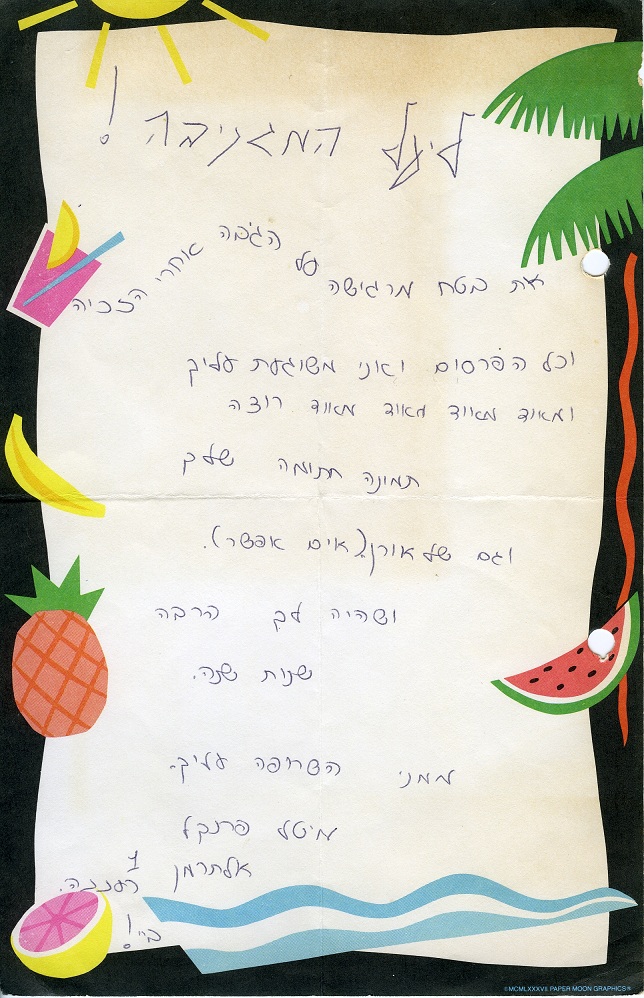 ליעל המגניבה !
את בטח מרגישה על הגבה אחרי הזכיה
וכל הפרסום ואני משוגעת עליך
ומאוד מאוד מאוד מאוד רוצה
תמונה חתומה שלך
וגם של אורן.(אים אפשר).
ושהיה לך הרבה
שנות שנה.
ממני השרופה עליך.
מיטל פרנקל
אלתרמן 1 רעננה.
ביי!
©MCMLXXXVII PAPER MOON GRAPHICS®